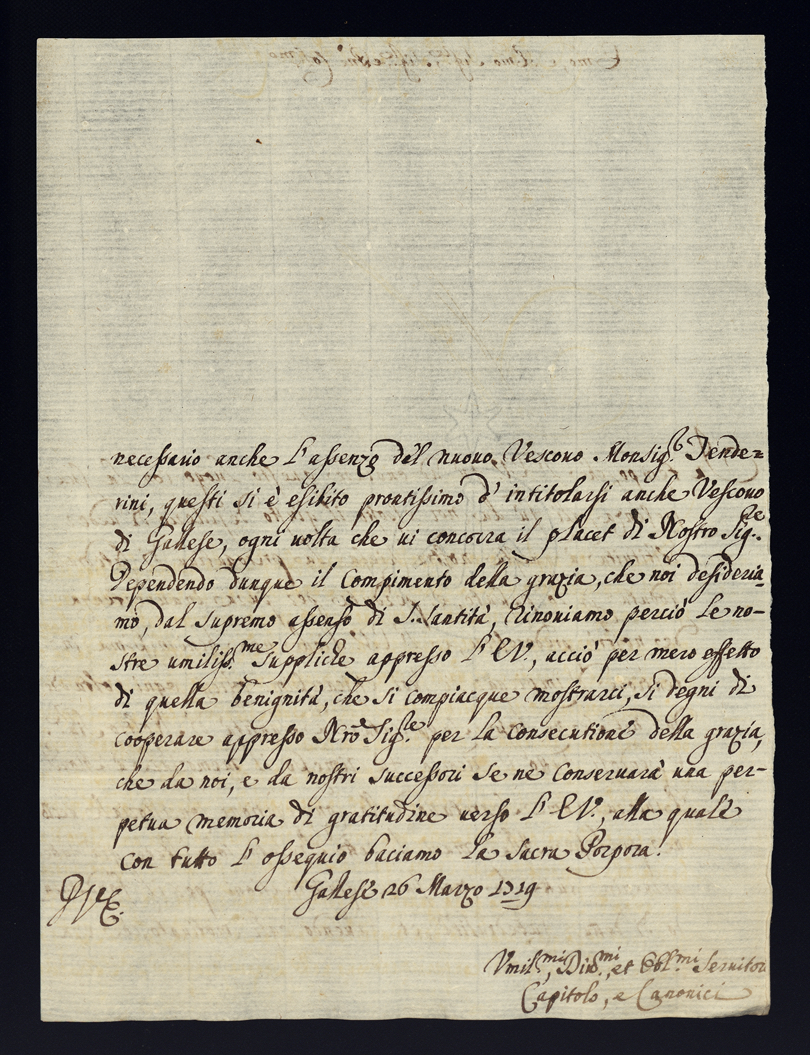 necessario anche l'assenzo del nuovo Vescovo Monsig.r Tende=
rini, questi si è esibito prontissimo d'intitolarsi anche Vescovo
di Gallese, ogni volta che vi concorra il placet di Nostro Sig.re
Dependendo dunque il compimento della grazia, che noi desideria-
mo, dal supremo assenso di S. Santità, rinoviamo perciò le no-
stre umiliss.me suppliche appresso l'E.V., acciò per mero effetto
di quella benignità, che si compiacque mostrarci, si degni di
cooperare appresso Nro Sig.re per la consecutione della grazia,
che da noi, e da nostri successori se ne conservarà una per-
petua memoria di gratitudine verso l'E.V., alla quale
con tutto l'ossequio baciamo la Sacra Porpora.
Gallese 26 Marzo 1719
Vmil.mi, Div.mi, et Obl.mi Servitori
Capitolo, e Canonici